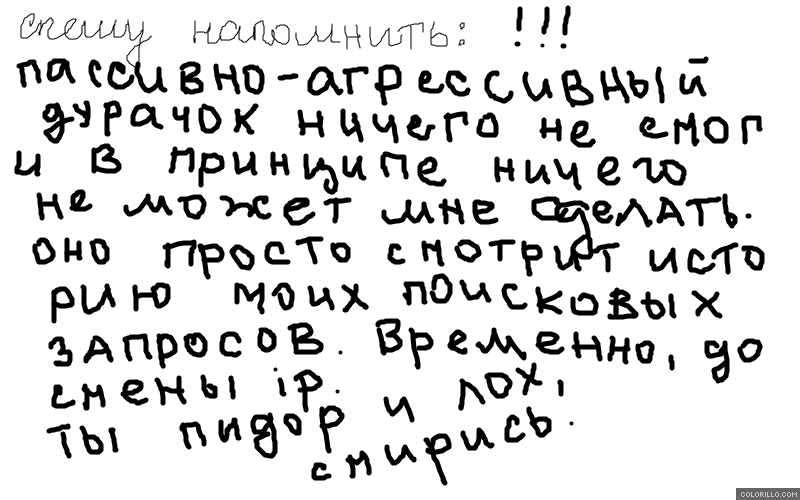 спешу напомнить: !!!
пассивно-агрессивный
дурачок ничего не смог
и в принципе ничего
не может мне сделать.
оно просто смотрит исто
рию моих поисковых
запросов. Временно, до
смены ip.
ты пидор и лох,
смирись.
COLORILLO.COM